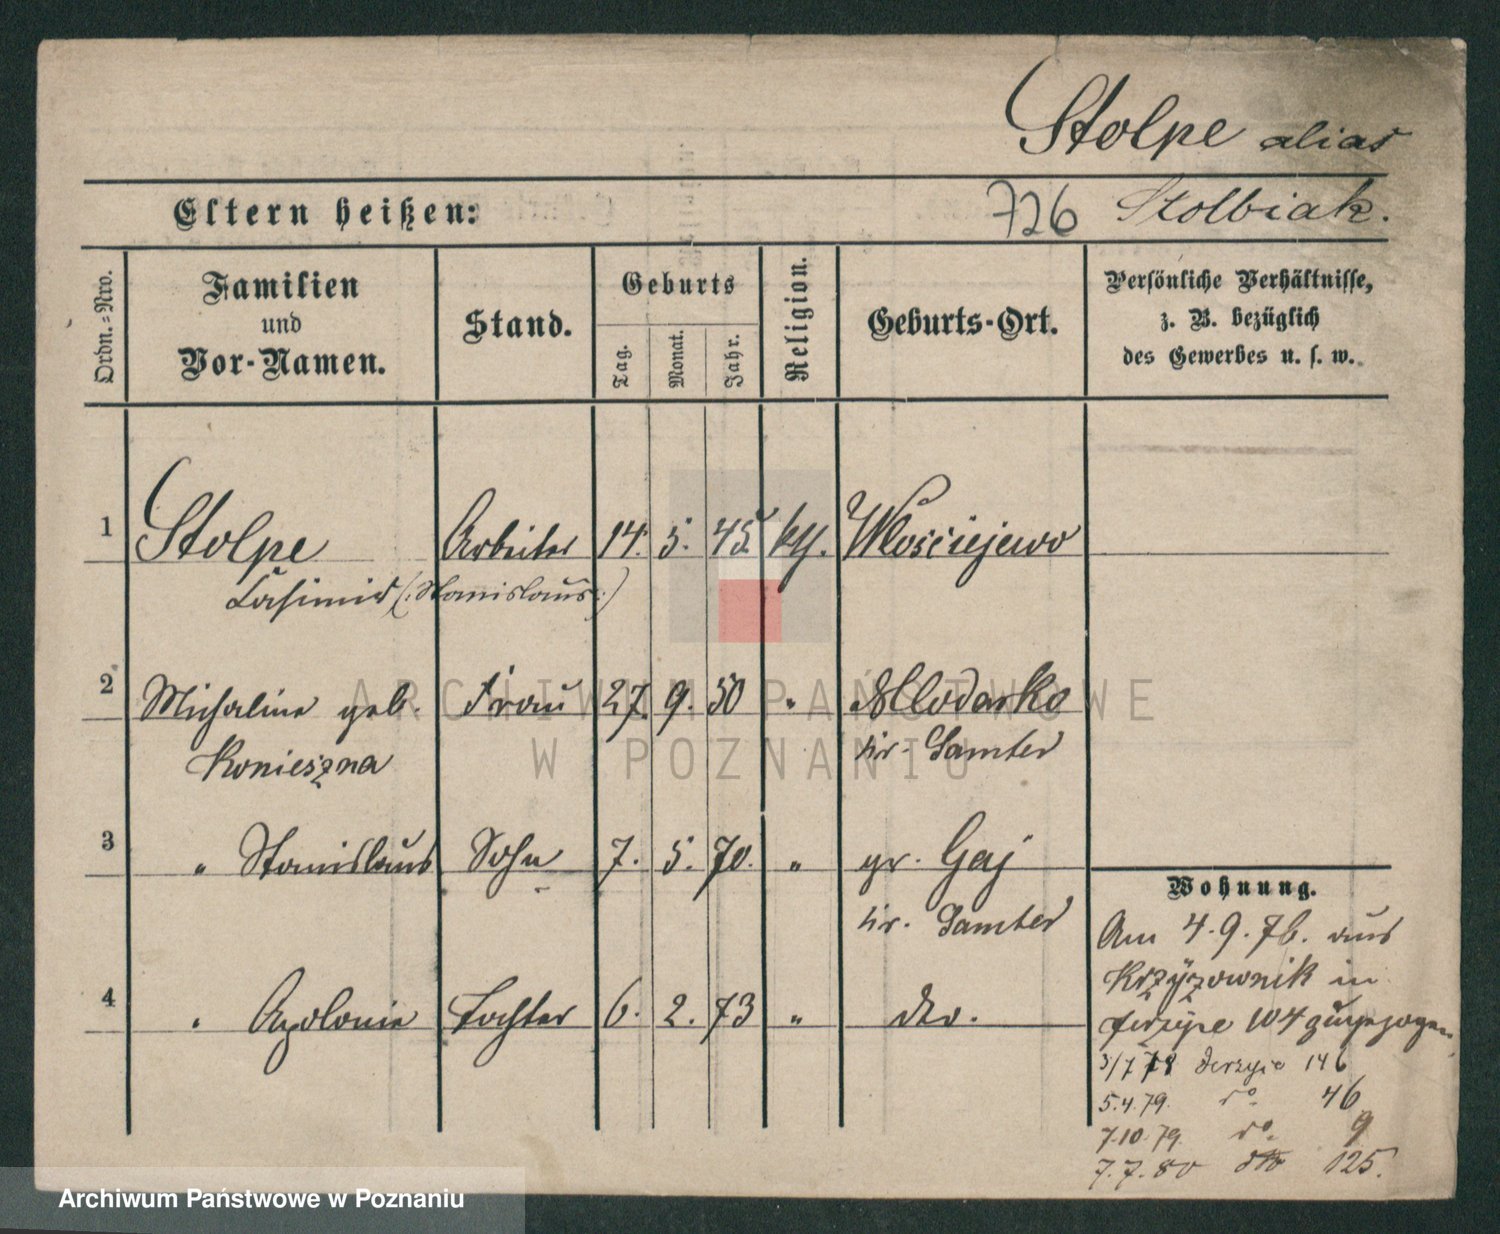 Stolpe alias
Eltern heißen: 726 Stolbiak.
Ordn.-Nro.
Familien
und
Vor-Namen.
Stand.
Geburts
Tag.
Monat.
Jahr.
Religion.
Geburts-Ort.
Persönliche Verhältnisse,
z. B. bezüglich
des Gewerbes u. s. w.
1 Stolpe Arbeiter 14. 5. 45 kth. Włościejewo
Casimir (:Stanislaus:)
2 Michaline geb. Frau 27. 9. 50 " Mlodasko
Konieszna Kr. Samter
3 " Stanislaus Sohn 7. 5. 70. " gr. Gaj
Kr. Samter
4 " Apolonie Tochter 6. 2. 73 " dto.
Wohnung.
Am 4.9.76. aus
Krzyżownik in
Jerzyce 104 zugezogen
3/7 78 Jerzyce 146
5.4.79. do 46
7.10.79. do. 9
7.7.80 dto 125.
ARCHIWUM PAŃSTWOWE
W POZNANIU
Archiwum Państwowe w Poznaniu